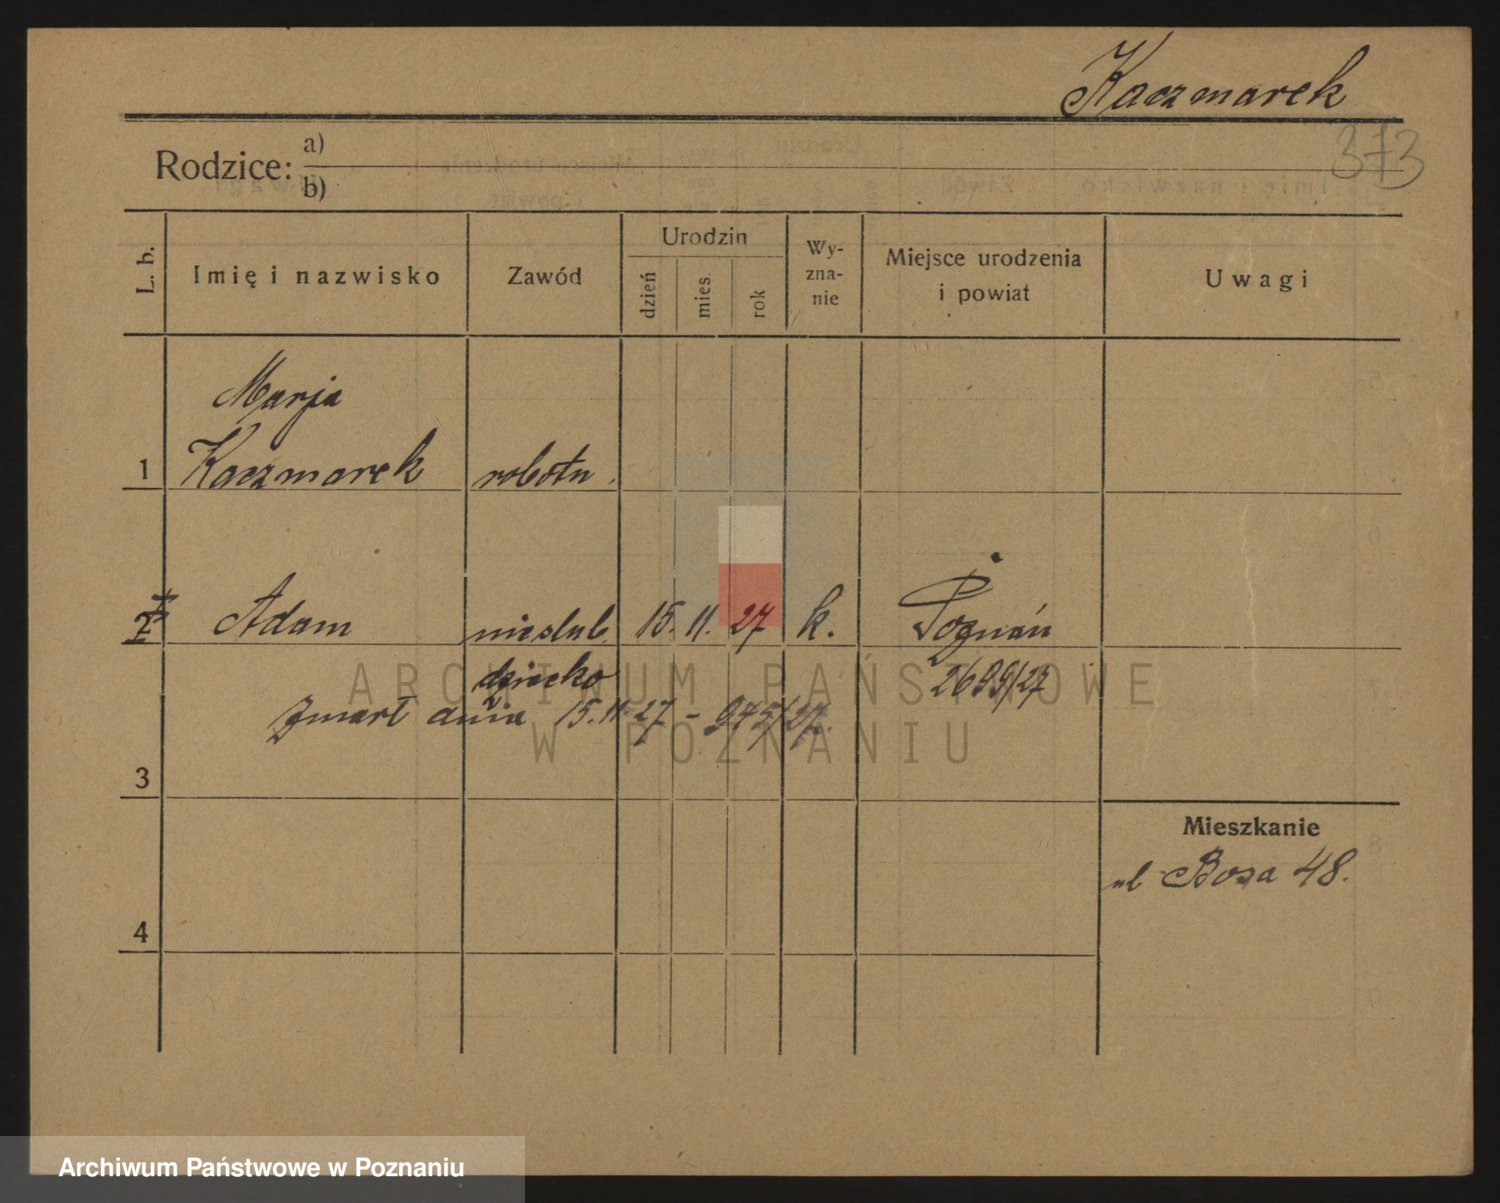 Kaczmarek
373
Rodzice: a)
b)
L. b.
Imię i nazwisko
Zawód
Urodzin
dzień
mies.
rok
Wy-
zna-
nie
Miejsce urodzenia
i powiat
Uwagi
Marja
1 Kaczmarek robotn.
2 Adam nieslub. 15. 11. 27 k. Poznań
dziecko 2699/27
zmarł dnia 15.11.27 - 975/27.
3
Mieszkanie
ul Bosa 48.
4
ARCHIWUM PAŃSTWOWE
W POZNANIU
Archiwum Państwowe w Poznaniu